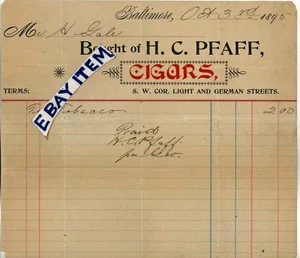 Baltimore, Oct 3rd 1895
Mr H Gale
Bought of H. C. PFAFF,
CIGARS,
TERMS: S. W. COR. LIGHT AND GERMAN STREETS.
Tobacco 2 00
Paid
H. C. Pfaff
EBAY ITEM